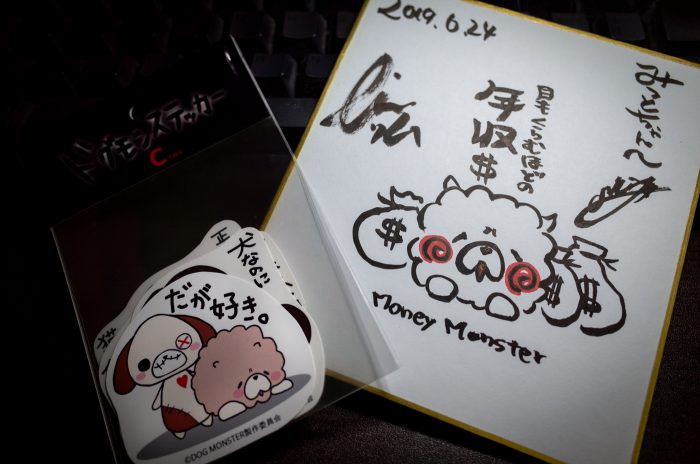 2019.6.24
目もくらむほどの
年収$
$
$
$
Money Monster
ドゲモンステッカー
C TYPE
正
犬なのに
だが好き。
©DOG MONSTER製作委員会